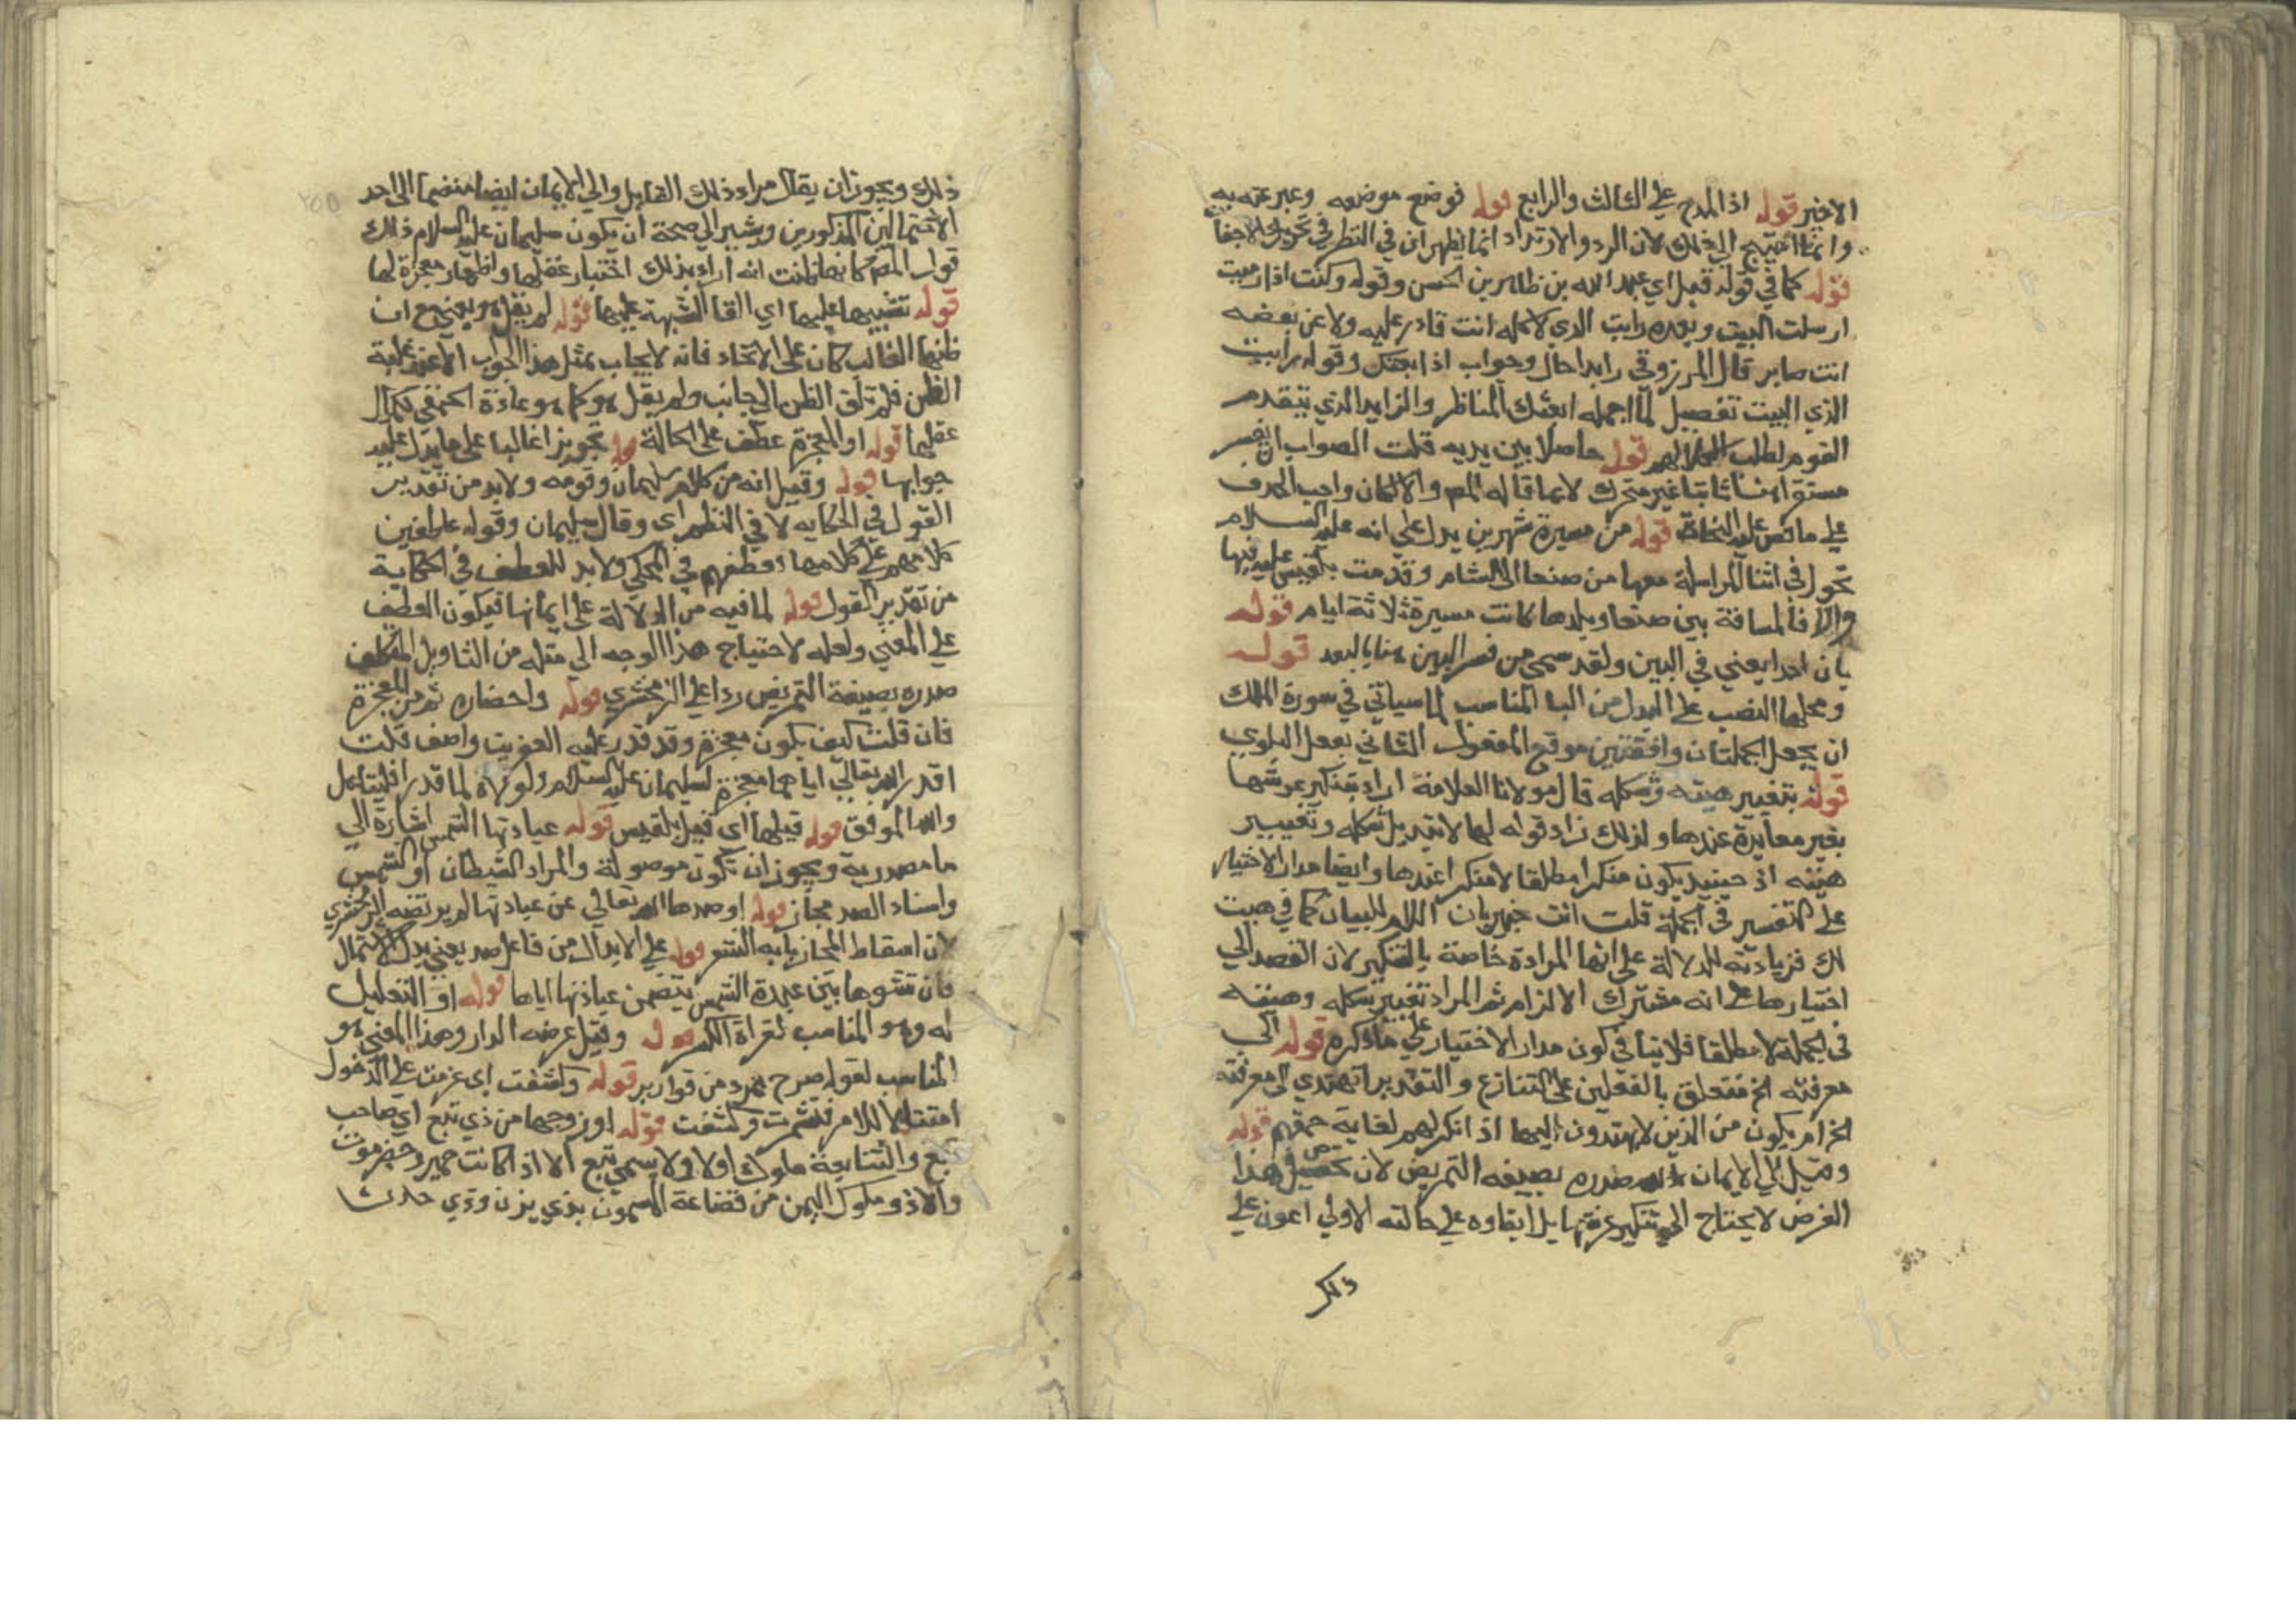 الاخير قوله اذ المدح علي الثالث والرابع قوله فوضع موضعه وعبر عنه به
وانما احتيج الي ذلك لان الرد والارتداد انما يظهر ان في النظر في تحريك الاجفان
قوله كما في قوله قيل اي عبد الله بن طاهر بن الحسن وقوله وكنت اذا ارسلت
ارسلت البيت وبعده رايت الذي لا كله انت قادر عليه ولا عن بعضه
انت صابر قال المرزوقي رايدا حال وجواب اذا اتعبتك وقوله رايت
الذي البيت تفصيل لما اجمله اتعبتك المناظر والرايد الذي يتقدم
القوم لطلب الكلا لهم قوله حاصلا بين يديه قلت الصواب ان يفسر
مستقرا هنا ثابتا غير متحرك لا بما قاله المص والا لكان واجب الحذف
علي ما نص عليه النحاة قوله من مسيرة شهرين يدل علي انه عليه السلام
تحول في اثنا المراسلة معها من صنعا الي الشام وقدمت بلقيس عليه فيها
والا فالمسافة بين صنعا وبلدها كانت مسيرة ثلاثة ايام قوله
بان اجد يعني في البين ولقد سمي من فسر البين هنا بالبعد قوله
ومحلها النصب علي البدل من اليا المناسب لما سياتي في سورة الملك
ان يجعل الجملتان واقعتين موقع المفعول الثاني بفعل البلوي
قوله بتغيير هيئته وشكله قال مولانا العلامة اراد بتنكير عرشها
بغير معايدة عندها ولذلك زاد قوله لها لا تبديل شكله وتغيير
هيئته اذ حينئذ يكون منكرا مطلقا لا منكرا عندها وايضا مدار الاختيار
علي التفسير في الجملة قلت انت خبير بان اللام للبيان كما في هيت
لك فزيادته للدلالة علي انها المرادة خاصة بالتنكير لان القصد الي
اختبارها علي انه مشترك الالزام ثم المراد تغيير شكله وهيئته
في الجملة لا مطلقا فلا ينافي كون مدار الاختيار علي ما ذكره قوله الي
معرفته الخ متعلق بالفعلين علي التنازع والتقدير اتهتدي الي معرفته
الخ ام يكون من الذين لا يهتدون اليها اذ انكر لهم لغاية حمقهم قوله
وقيل الي الايمان صدره بصيغة التمريض لان تحصيل هذا
الغرض لا يحتاج الي تنكير عرشها بل ابقاوه علي حالته الاولي اعون علي
ذلك
ذلك ويجوز ان يقال مراد ذلك القايل والي الايمان ايضا منضما الي احد
الاحتمالين المذكورين ويشير الي صحة ان يكون سليمان عليه السلام ذلك
قول المص كانها ظنت انه اراد بذلك اختبار عقلها واظهار معجزة لها
قوله تشبيها عليها اي القا الشبهة عليها قوله لم يقل هو يعني مع ان
ظنها الغالب كان علي الاتحاد فانه لا يجاب بمثل هذا الجواب الا عند غلبة
الظن فلم تلق الظن الي جانب ولم يقل هو كما هو عادة الحمقي لكمال
عقلها قوله او المعجزة عطف علي الحالة قوله تجويزا غالبا علي ما يدل عليه
جوابها قوله وقيل انه من كلام سليمان وقومه ولا بد من تقدير
القول في الحكايه لا في النظم اي وقال سليمان وقوله عاطفين
كلامهم علي كلامها وعطفهم في المحكي ولا بد للعطف في الحكاية
من تقدير القول قوله لما فيه من الدلالة علي ايمانها فيكون العطف
علي المعني ولعله لاحتياج هذا الوجه الي مثله من التاويل المتكلف
صدره بصيغة التمريض ردا علي الزمخشري قوله واحضاره ثم من المعجزة
فان قلت كيف يكون معجزة وقد قدر عليه العفريت واصف قلت
اقدر الله تعالي اياهما معجزة لسليمان عليه السلام ولولاه لما قدرا فليتامل
والله الموفق قوله قبلها اي قبل بلقيس قوله عبادتها الشمس اشارة الي
ما مصدرية ويجوز ان تكون موصولة والمراد الشيطان او الشمس
واسناد الصد مجاز قوله او صدها الله تعالي عن عبادتها لم يرتضه الزمخشري
لان اسقاط الجار بابه الشعر قوله علي الابدال من فاعل صد يعني بدل الاشتمال
فان نشوها بين عبدة الشمس يتضمن عبادتها اياها قوله او التعليل
له وهو المناسب لقراة الكسر قوله وقيل عرضه الدار وهذا المعني هو
المناسب لقوله صرح ممرد من قوارير قوله وكشفت اي عزمت علي الدخول
امتثالا للامر فتشمرت وكشفت قوله او زوجها من ذي تبع اي صاحب
تبع والتتابعة ملوك اولا ولا يسمي تبع الا اذا كانت حمير وحضرموت
والاذو ملوك اليمن من قضاعة المسمون بذي يزن وذي